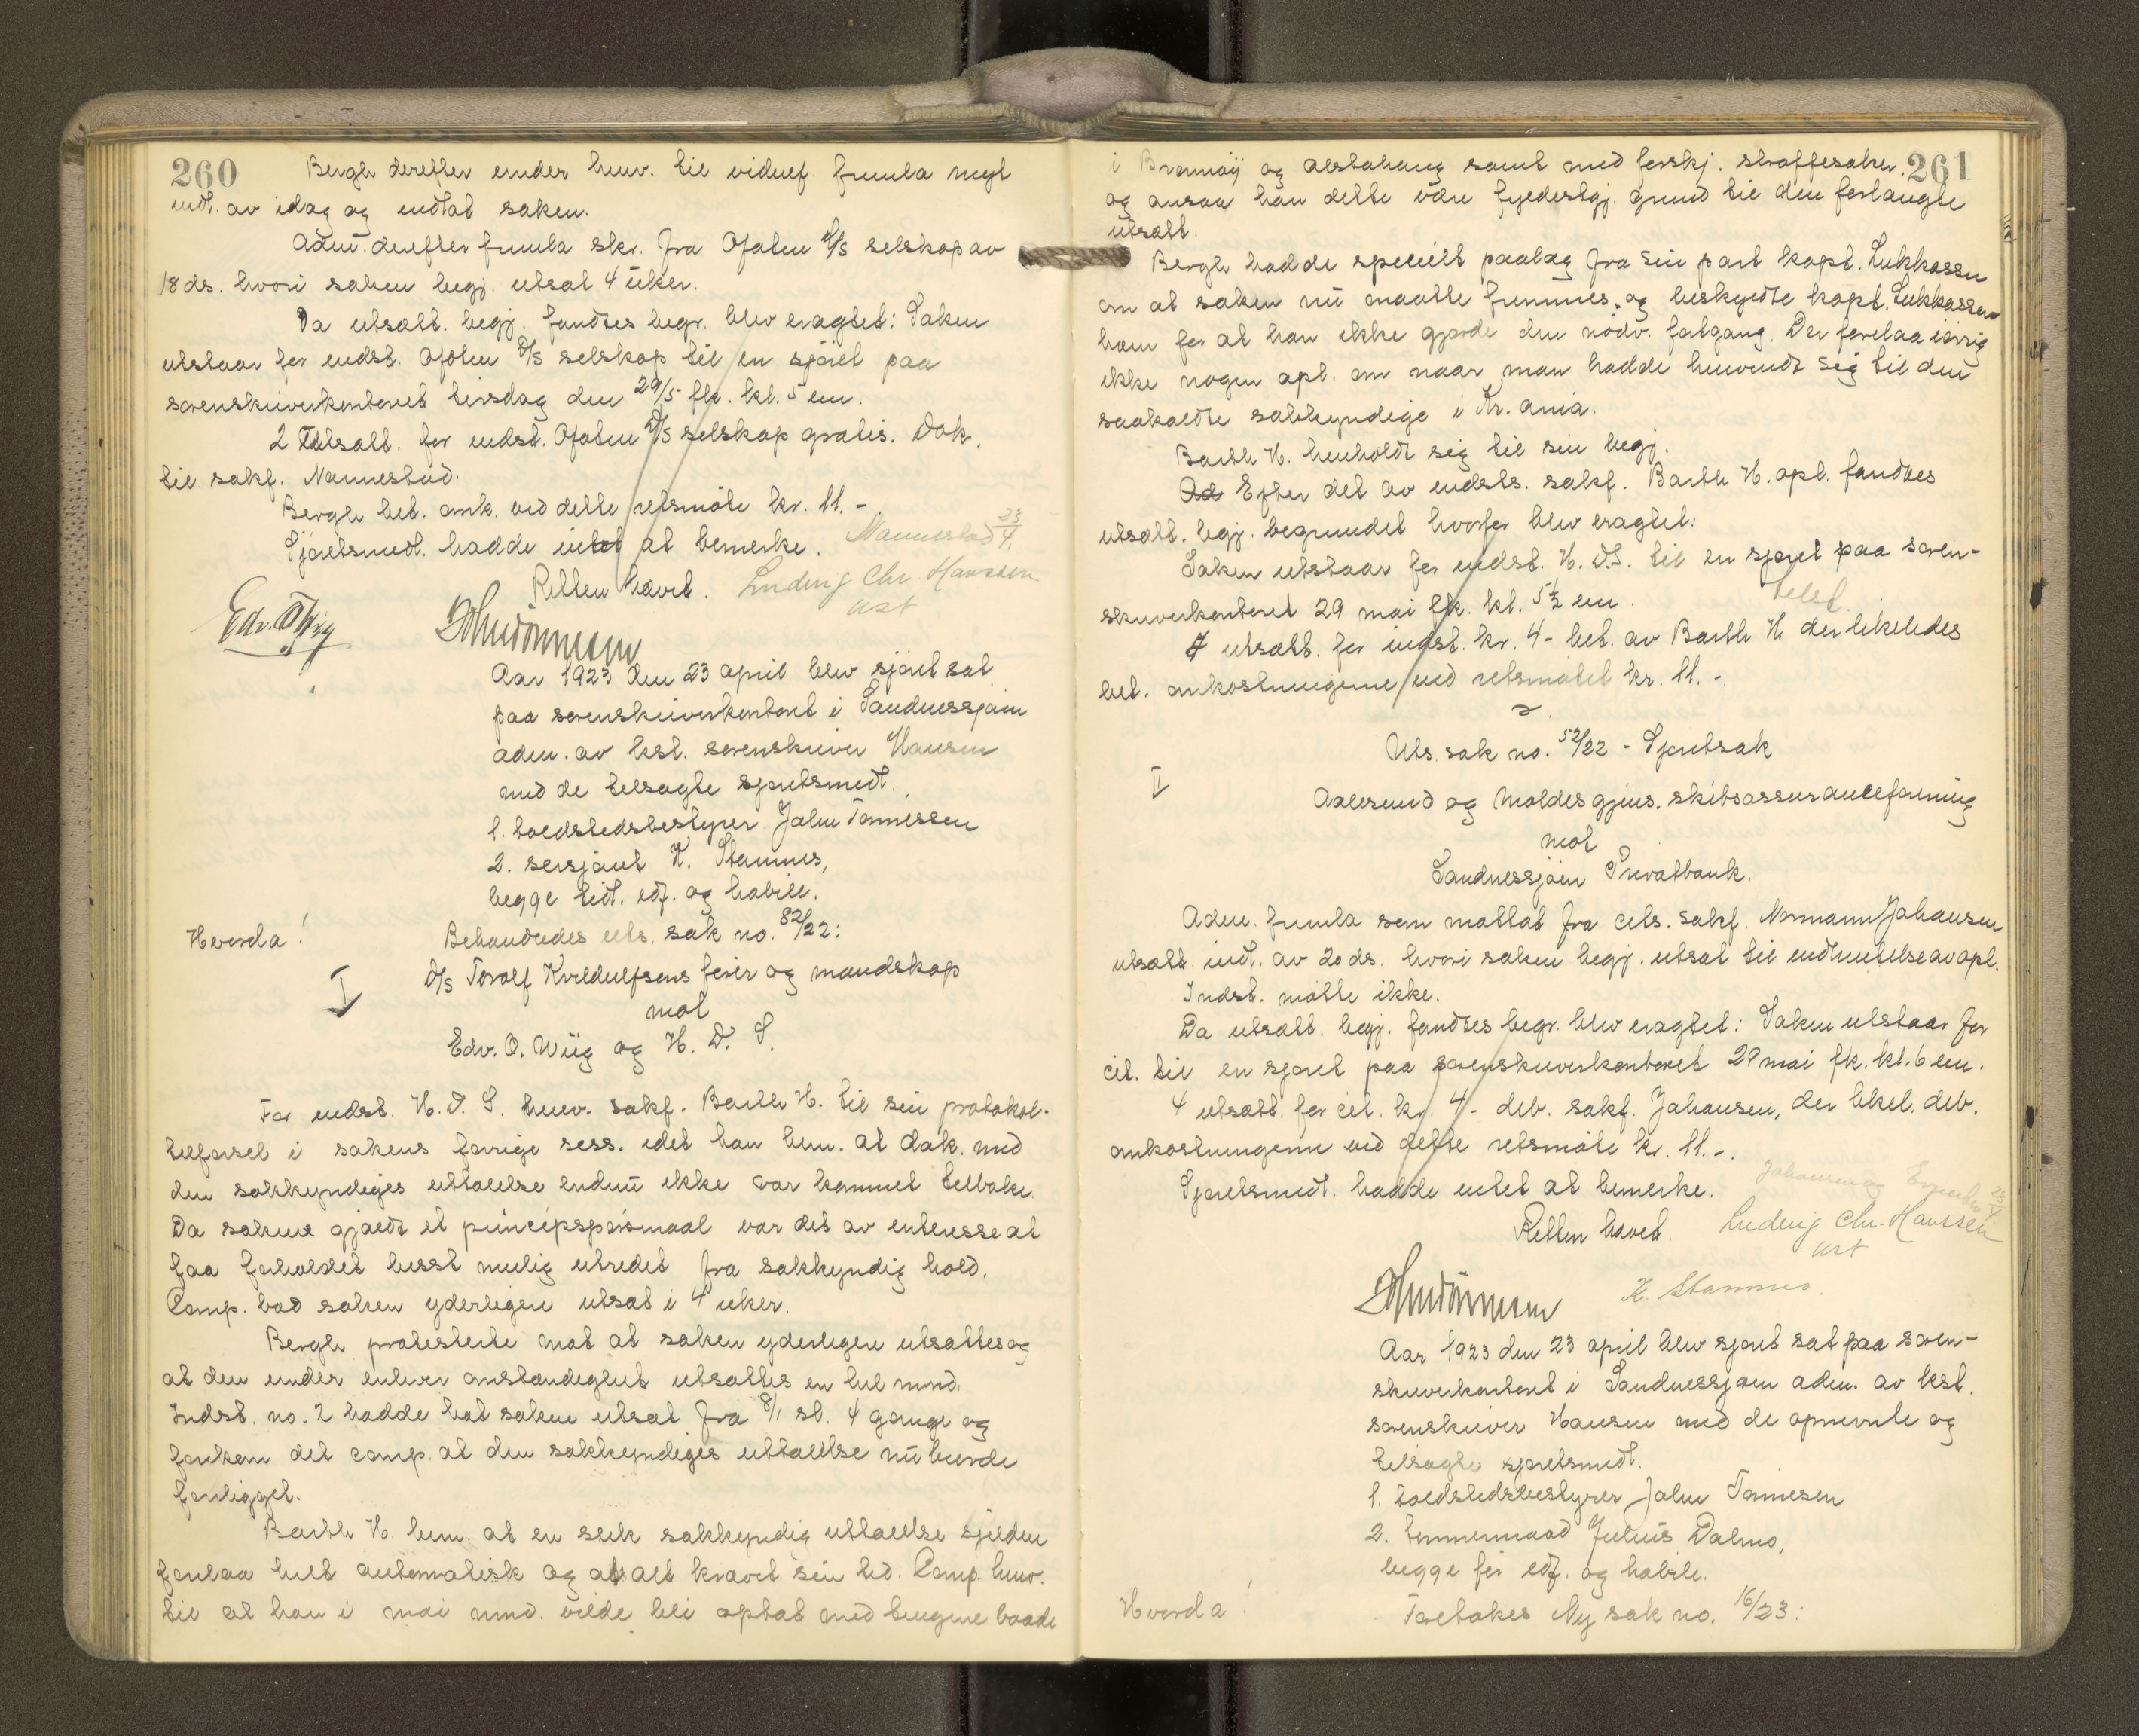 260
Bergh derefter under henv. til viduef. fremla nyt
indl. av idag og indtok saken.
Adm. derefter fremla skr. fra Ofoten D/S selskap av
18 ds. hvori saken begj. utsat 4 uker.
Da utsætt. begj. fandtes begr. blev eragtet: Saken
utstaar for indst. Ofoten D/S selskap til en sjøret paa
sorenskriverkontoret tirsdag den 29/5 fk. kl. 5 em.
2 utsætt. for indst. Ofoten D/S selskap gratis. Dok.
til sakf. Nannestad.
Bergh bet. omk. ved dette retsmöte kr. 11.-
Sjøretsmedl. hadde intet at bemerke. Nannestad 23/4
Retten hævet. Ludvig Chr. Hanssen
ust
Edv. O Wiig
Aar 1923 den 23 april blev sjøret sat
paa sorenskriverkontoret i Sandnessjøen
adm. av kst. sorenskriver Hansen
med de tilsagte sjøretsmedl.
1. toldstedsbestyrer John Tønnessen
2. sersjant K. Stamnes,
begge tidl. edf. og habile.
Hvorda!
Behandledes uts. sak no. 82/22:
I
D/S Torolf Kveldulfsens fører og mandskap
mot
Edv. O. Wiig og H. D. S.
For indst. H. D. S. henv. sakf. Barth H. til sin protokol-
tilførsel i sakens forrige sess. idet han bem. at dok. med
den sakkyndiges uttalelse endnu ikke var kommet tilbake.
Da sakene gjældt et principspørsmaal var det av interesse at
faa forholdet besst mulig utredet fra sakkyndig hold.
Comp. bad saken yderligere utsat i 4 uker.
Bergh protesterte mot at saken yderligere utsattes og
at den under enhver omstændighet utsattes en hel mnd.
Indst. no. 2 hadde hat sakene utsat fra 8/1 sl. 4 gange og
forekom det comp. at den sakkyndiges uttalelse nu burde
foreligget.
Barth H. bem. at en slik sakkyndig uttalelse sjelden
forelaa helt automatisk og at alt krævet sin tid. Comp. henv.
til at han i mai mnd. vilde bli optat med tingene baade
261
i Brønnøy og Alstahaug samt med forskj. straffesaker.
og ansaa han dette være fyldestgj. grund til den forlangte
utsætt.
Bergh hadde specielt paalæg fra sin part kapt. Lukkassen
om at saken nu maatte fremmes, og beskyldte kapt. Lukkassen
ham for at han ikke gjorde den nødv. fortgang. Der forelaa iøvrig
ikke nogen opl. om naar man hadde henvendt sig til den
saakaldte sakkyndige i Kr.ania.
Barth H. henholdt sig til sin begj.
Efter det av indsts. sakf. Barth H. opl. fandtes
utsætt. begj. begrundet hvorfor blev eragtet:
Saken utstaar for indst. H. D. S. til en sjøret paa soren-
skriverkontoret 29 mai fk. kl. 5½ em.
utsætt. for indst. kr. 4- bet. av Barth H. der likeledes
bet. omkostningerne ved retsmötet kr. 11.-
Uts. sak no. 52/22 - Sjøretsak
II
Aalesund og Moldes gjens. skibsassuranceforening
mot
Sandnessjøen Privatbank.
Adm. fremla som mottat fra cits. sakf. Normann Johansen
utsætt. indl. av 20 ds. hvori saken begj. utsat til indhentelse av opl.
Indst. møtte ikke.
Da utsætt. begj. fandtes begr. blev eragtet: Saken utstaar for
cit. til en sjøret paa sorenskriverkontoret 29 mai fk. kl. 6 em.
4 utsætt. for cit. kr. 4.- deb. sakf. Johansen, der likel. deb.
omkostningerne ved dette retsmöte kr. 11.-.
Sjøretsmedl. hadde intet at bemerke.
Retten hævet. Ludvig Chr. Hanssen
ust
K. Stamnes.
Aar 1923 den 23 april blev sjøret sat paa soren-
skriverkontoret i Sandnessjøen adm. av kst.
sorenskriver Hansen med de opnævnte og
tilsagte sjøretsmedl.
1. toldstedsbestyrer John Tønnesen
2. tømmermand Julius Dalmo,
begge før edf. og habile.
Hvorda!
Foretokes Ny sak no. 16/23: